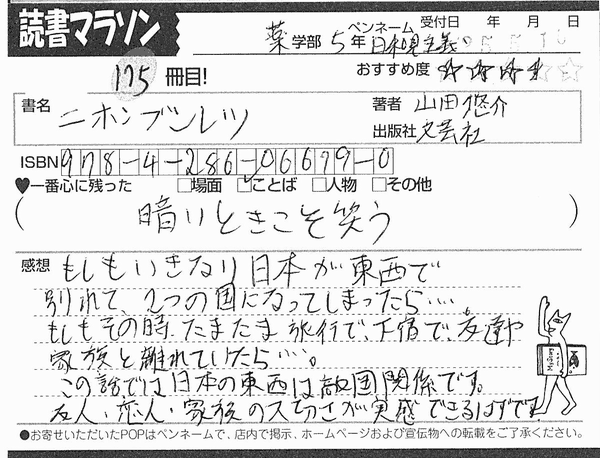 読書マラソン
薬学部 5年 ペンネーム 日和見主義。 受付日 年 月 日
175冊目! おすすめ度 ★★★★☆
書名 ニホンブンレツ 著者 山田悠介
出版社 文芸社
ISBN 978-4-286-06679-0
♥一番心に残った □場面 ☑ことば □人物 □その他
(暗いときこそ笑う)
感想 もしもいきなり日本が東西で
別れて、2つの国になってしまったら…。
もしもその時、たまたま旅行で、下宿で、友達や
家族と離れていたら…。
この話では日本の東西は敵国関係です。
友人・恋人・家族の大切さが実感できるはずです
●お寄せいただいたPOPはペンネームで、店内で掲示、ホームページおよび宣伝物への転載をご了承ください。